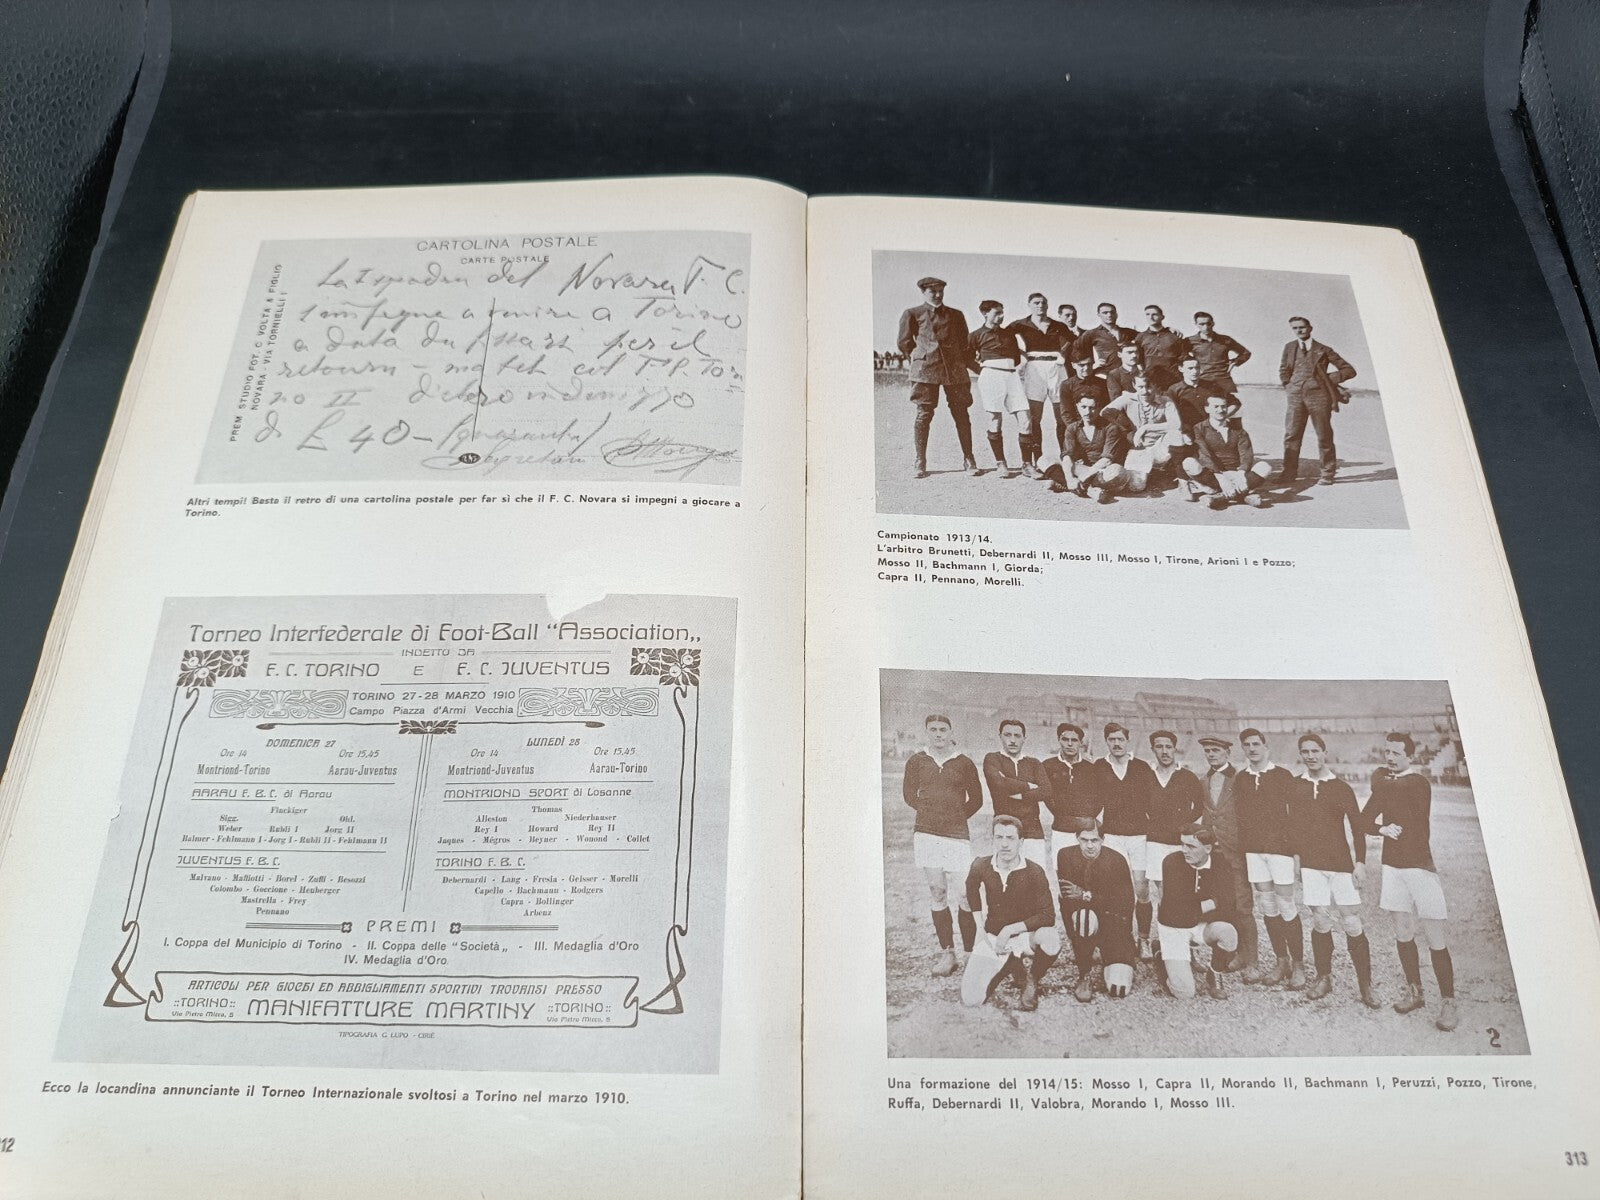 CARTOLINA POSTALE
CARTE POSTALE
PREM STUDIO FOT. C VOLTA & FIGLIO
NOVARA - VIA TORNIELLI 1
La Squadra del Novara F. C.
s'impegna a venire a Torino
a data da fissarsi per il
retourn - match col F.C. Tori
no II dietro indennizzo
di £ 40 - (quaranta)
Altri tempi! Basta il retro di una cartolina postale per far sì che il F. C. Novara si impegni a giocare a
Torino.
Torneo Interfederale di Foot-Ball "Association„
INDETTO DA
F. C. TORINO E F. C. JUVENTUS
TORINO 27-28 MARZO 1910
Campo Piazza d'Armi Vecchia
DOMENICA 27
Ore 14 Ore 15,45
Montriond-Torino Aarau-Juventus
AARAU F. B. C. di Aarau
Fluckiger
Sigg. Old.
Weber Rubli I Jorg II
Balmer - Fehlmann I - Jorg I - Rubli II - Fehlmann II
JUVENTUS F. B. C.
Malvano - Maffiotti - Borel - Zuffi - Besozzi
Colombo - Goccione - Heuberger
Mastrella - Frey
Pennano
LUNEDÌ 28
Ore 14 Ore 15,45
Montriond-Juventus Aarau-Torino
MONTRIOND SPORT di Losanne
Thomas
Alleston Niederhauser
Rey I Howard Rey II
Jaques - Mégros - Heyner - Wonond - Collet
TORINO F. B. C.
Debernardi - Lang - Fresia - Geisser - Morelli
Capello - Bachmann - Rodgers
Capra - Bollinger
Arbenz
PREMI
I. Coppa del Municipio di Torino - II. Coppa delle "Società„ - III. Medaglia d'Oro
IV. Medaglia d'Oro
ARTICOLI PER GIOCHI ED ABBIGLIAMENTI SPORTIVI TROVANSI PRESSO
::TORINO:: MANIFATTURE MARTINY ::TORINO::
Via Pietro Micca, 5 Via Pietro Micca, 5
TIPOGRAFIA G LUPO - CIRIÈ
Ecco la locandina annunciante il Torneo Internazionale svoltosi a Torino nel marzo 1910.
12
Campionato 1913/14.
L'arbitro Brunetti, Debernardi II, Mosso III, Mosso I, Tirone, Arioni I e Pozzo;
Mosso II, Bachmann I, Giorda;
Capra II, Pennano, Morelli.
2
Una formazione del 1914/15: Mosso I, Capra II, Morando II, Bachmann I, Peruzzi, Pozzo, Tirone,
Ruffa, Debernardi II, Valobra, Morando I, Mosso III.
313